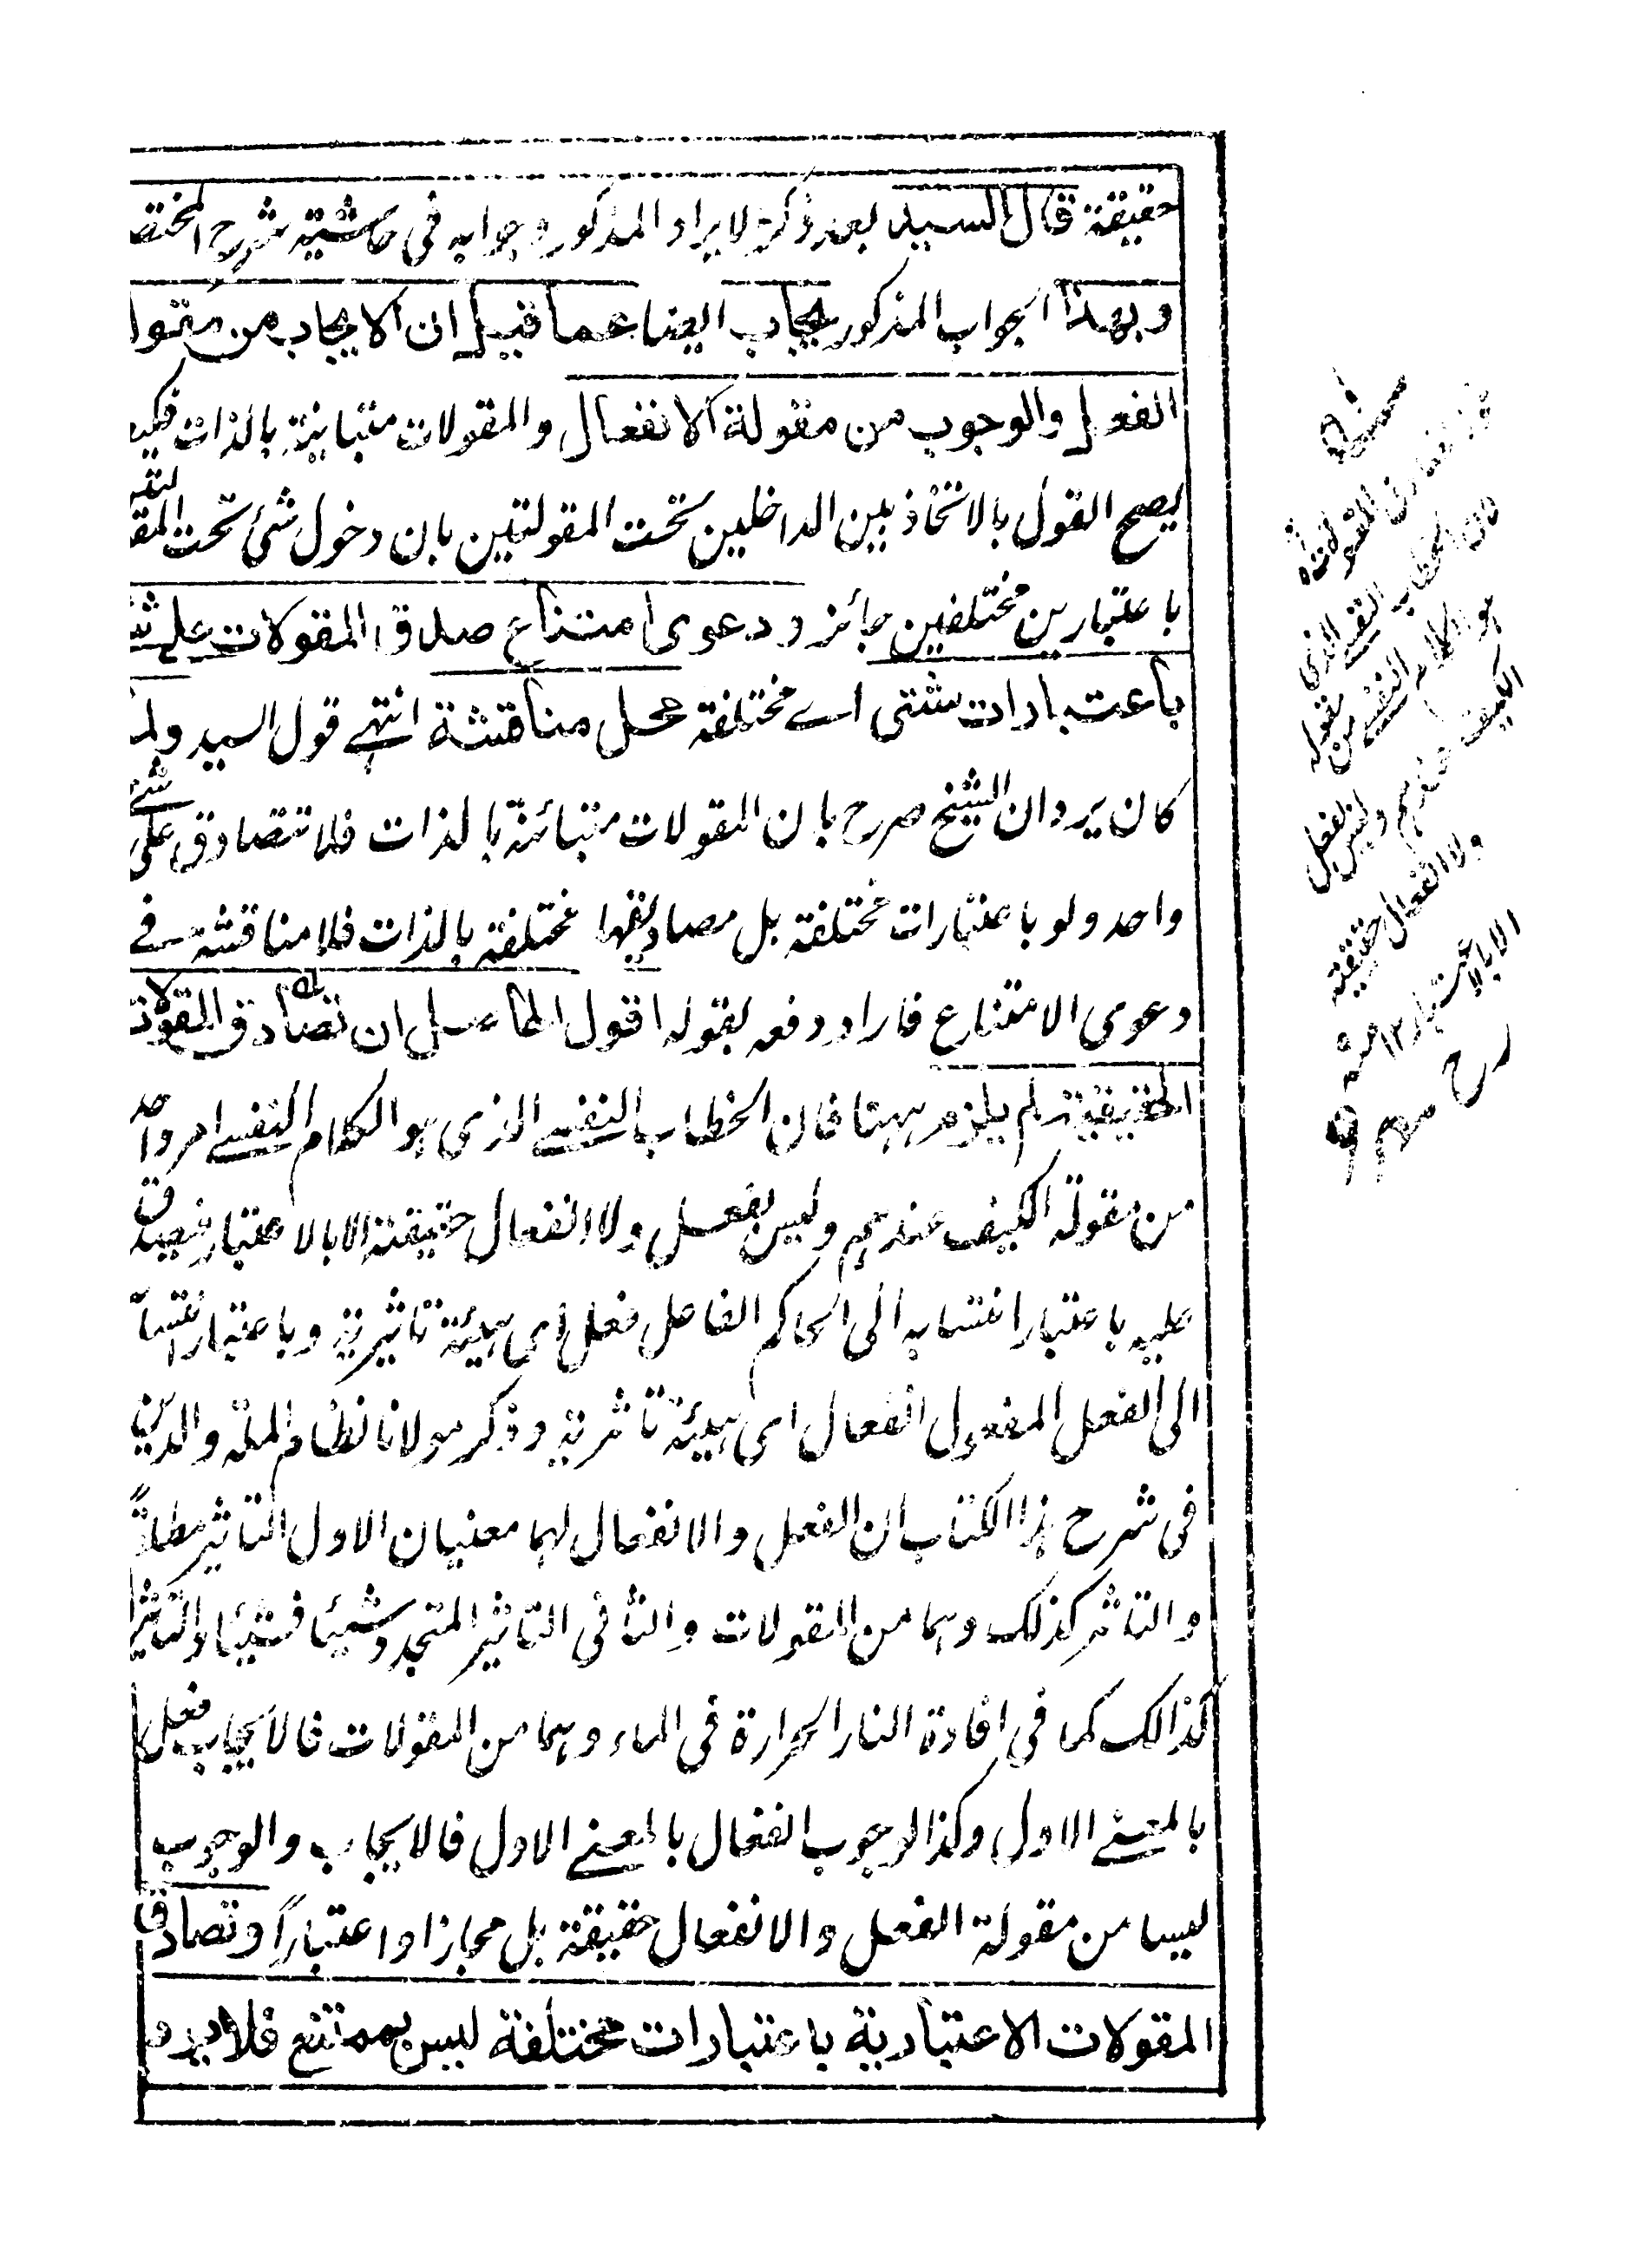 حقيقة قال السيد بعد ذكر الايراد المذكور وجوابه في حاشية شرح المختصـ
وبهذا الجواب المذكور يجاب ايضا عما قيل ان الايجاب من مقولـ
الفعل والوجوب من مقولة الانفعال والمقولات متباينة بالذات فكيـ
يصح القول بالاتحاد بين الداخلين تحت المقولتين بان دخول شئ تحت المقـ
باعتبارين مختلفين جائز ودعوى امتناع صدق المقولات على شئ
باعتبارات شتى اے مختلفة محل مناقشة انتهى قول السيد ولما
كان يرد ان الشيخ صرح بان المقولات متبائنة بالذات فلا تتصادق على شئ
واحد ولو باعتبارات مختلفة بل مصاديقها مختلفة بالذات فلا مناقشة في
دعوى الامتناع فاراد دفعه بقوله اقول الحاصل ان تصادق المقولات
الحقيقية لم يلزم ههنا فان الخطاب النفسي الذي هو الكلام النفسي امر واحد
من مقولة الكيف عندهم وليس بفعل ولا انفعال حقيقة الا بالاعتبار فيصدق
عليه باعتبار انتسابه الى الحاكم الفاعل فعل اى هيئة تاثيرية وباعتبار انتسا
الى الفعل المفعول انفعال اى هيئة تاثرية وذكر مولانا نظام الملة والدين
في شرح هذا الكتاب ان الفعل والانفعال لهما معنيان الاول التاثير مطلقاً
والتاثر كذلك وهما من المقولات والثاني التاثير المتجدد شيئا فشيئا والتاثر
كذالك كما في افادة النار الحرارة في الماء وهما من المقولات فالايجاب فعل
بالمعنى الاول وكذا الوجوب انفعال بالمعنى الاول فالايجاب والوجوب
ليسا من مقولة الفعل والانفعال حقيقة بل مجازا واعتباراً وتصادق
المقولات الاعتبارية باعتبارات مختلفة ليس بممتنع فلا يرد
المقولات
فان الخطاب النفسي الذي
هو الكلام النفسي من مقولة
الكيف عندهم وليس بفعل
ولا انفعال حقيقة
الا بالاعتبار ١٢ منه